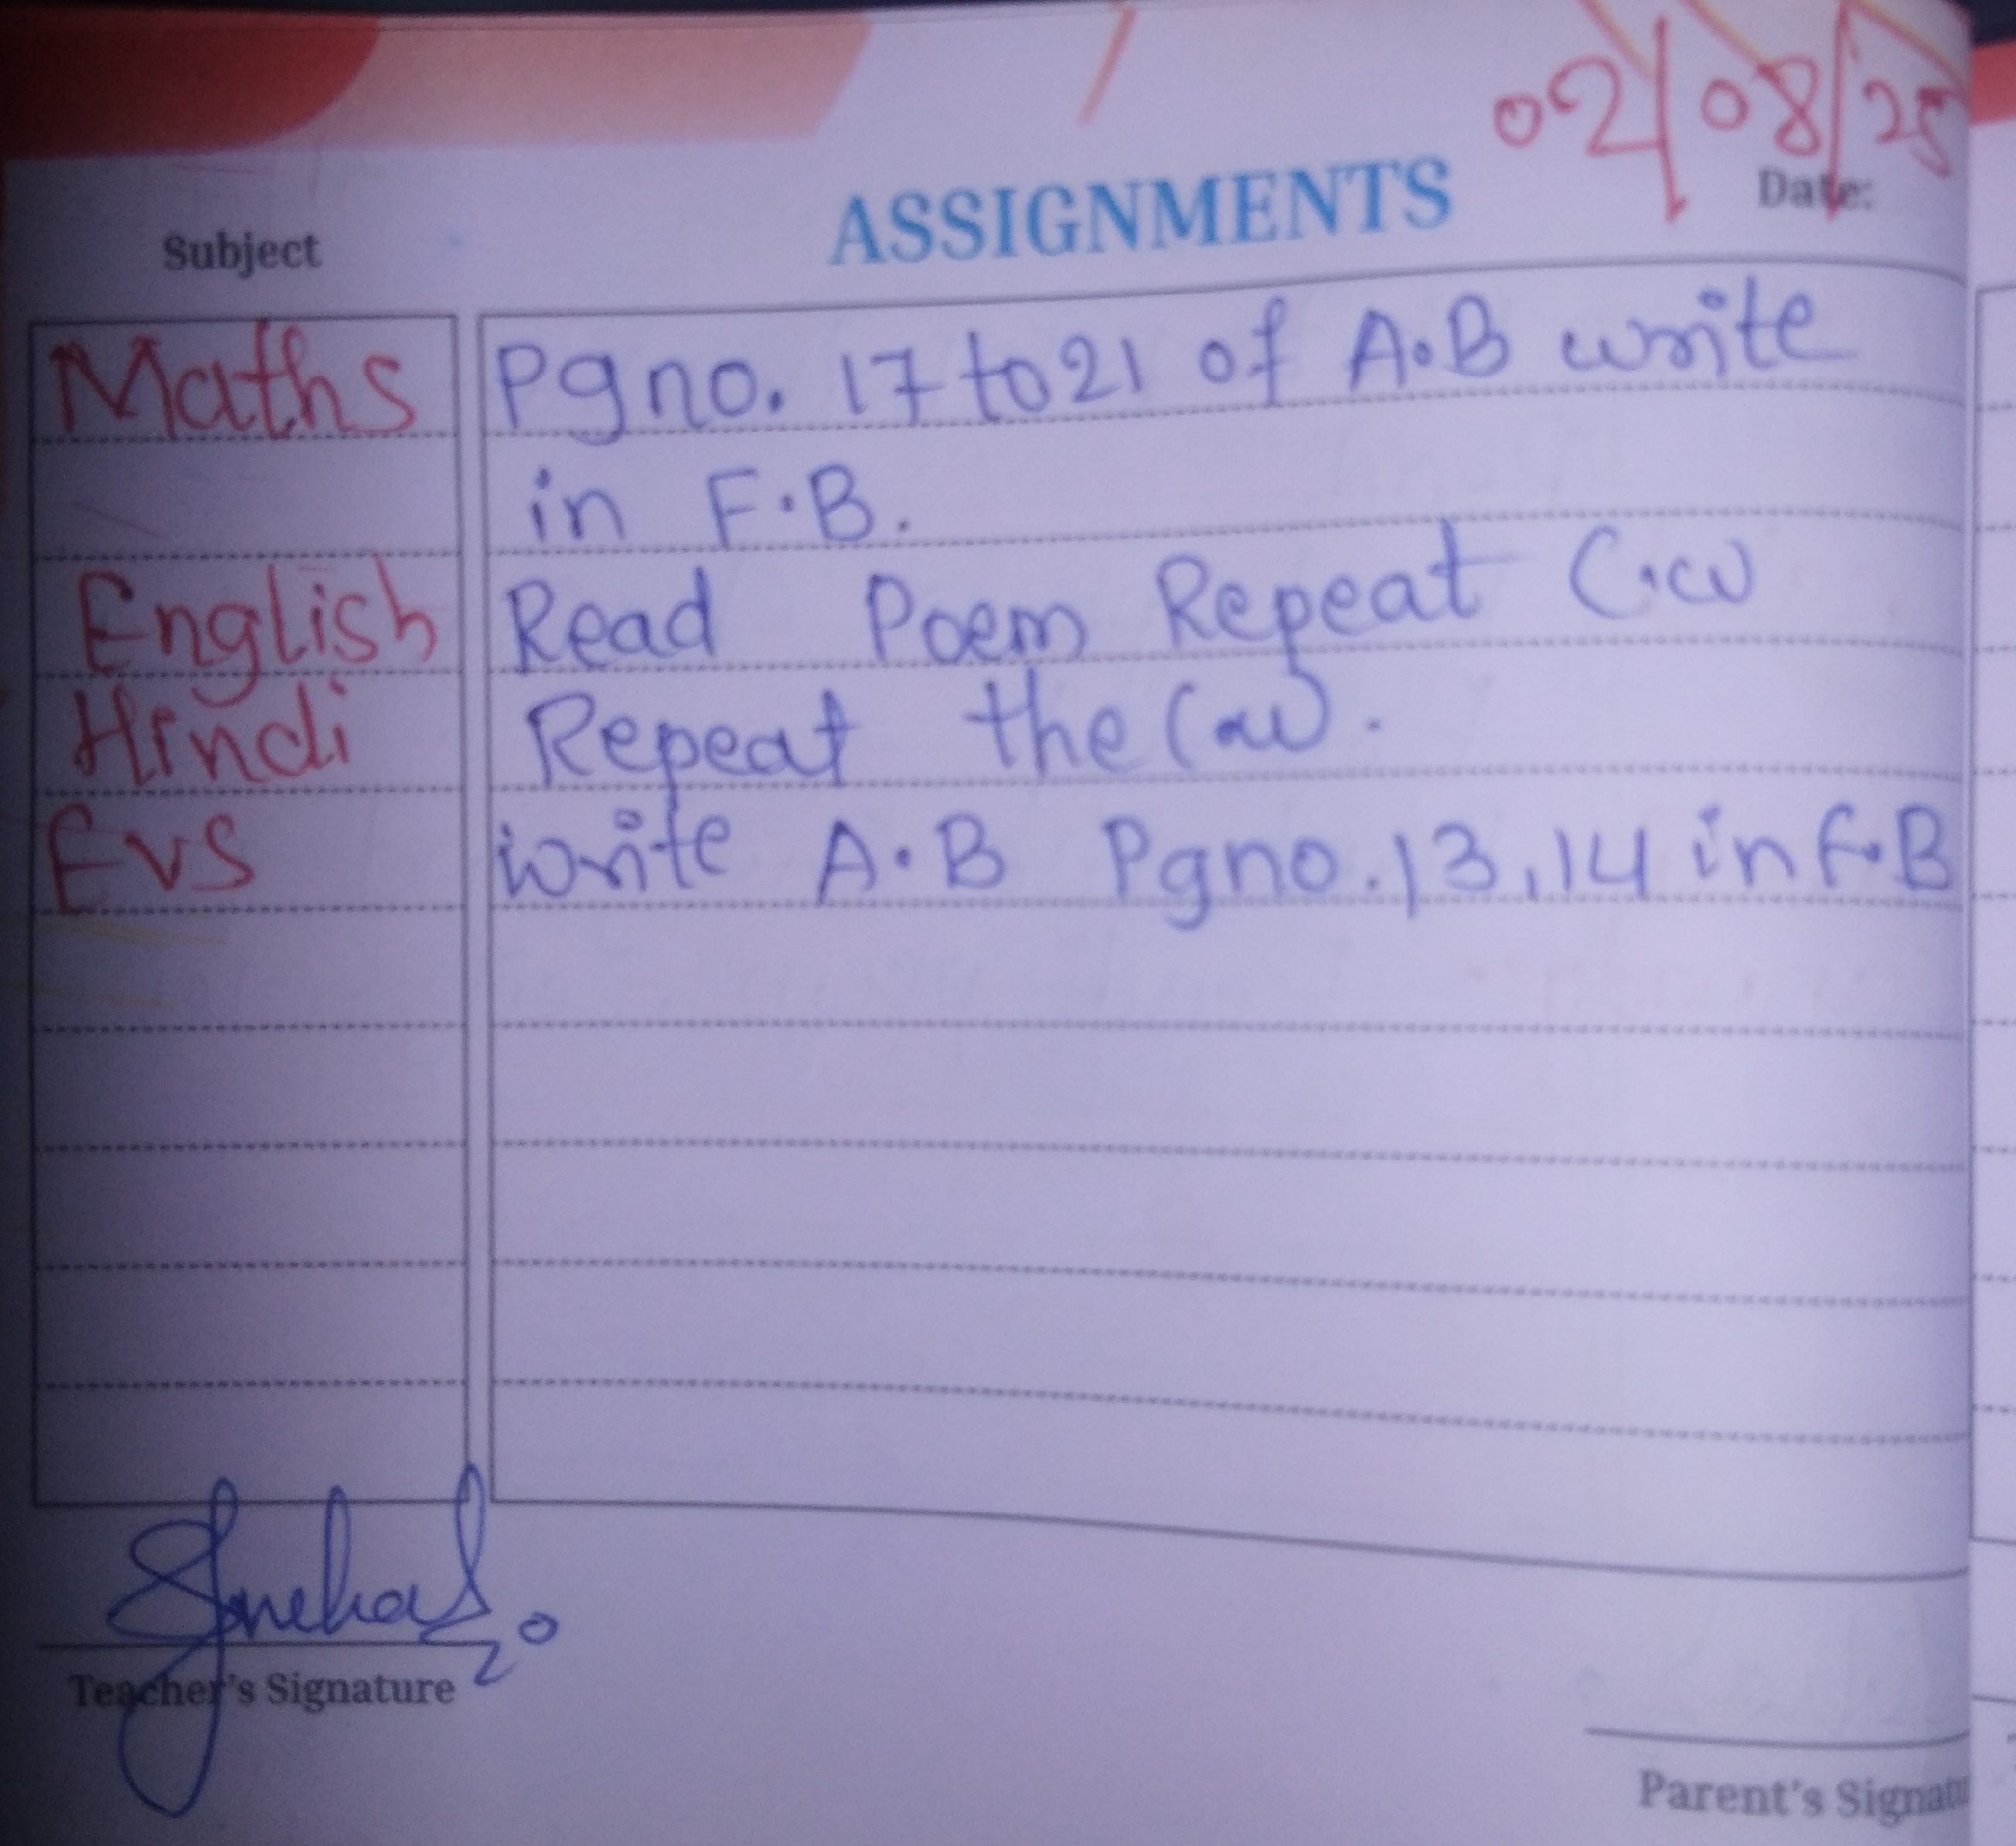 02/08/25
ASSIGNMENTS
Subject
Date:
Maths Pg no. 17 to 21 of A.B write
in F.B.
English Read Poem Repeat C.W
Hindi Repeat the C.W.
Evs write A.B Pg no. 13,14 in F.B
Teacher's Signature
Parent's